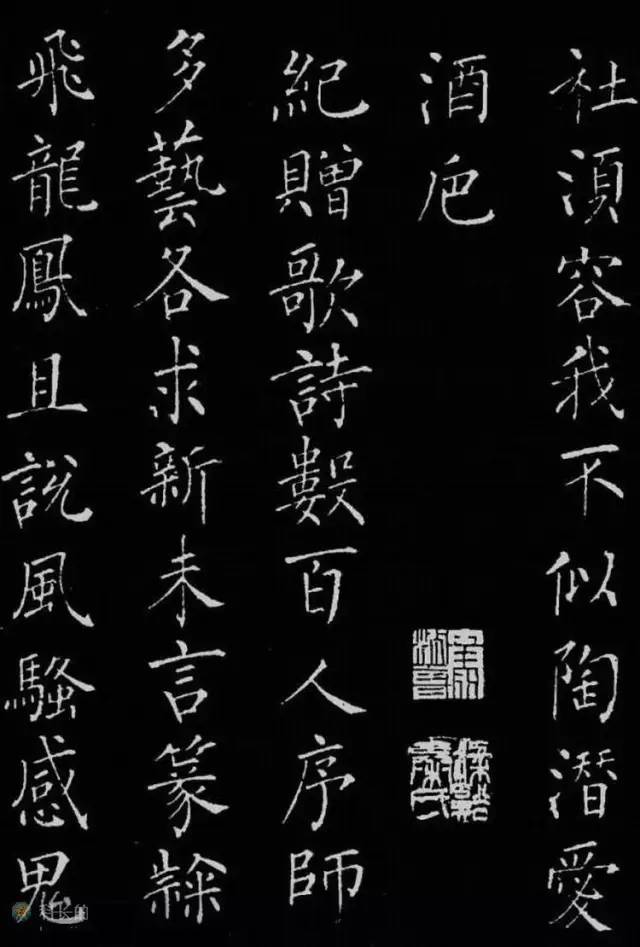 社須容我不似陶潛愛
酒卮
紀贈歌詩數百人序師
多藝各求新未言篆隸
飛龍鳳且說風騷感鬼